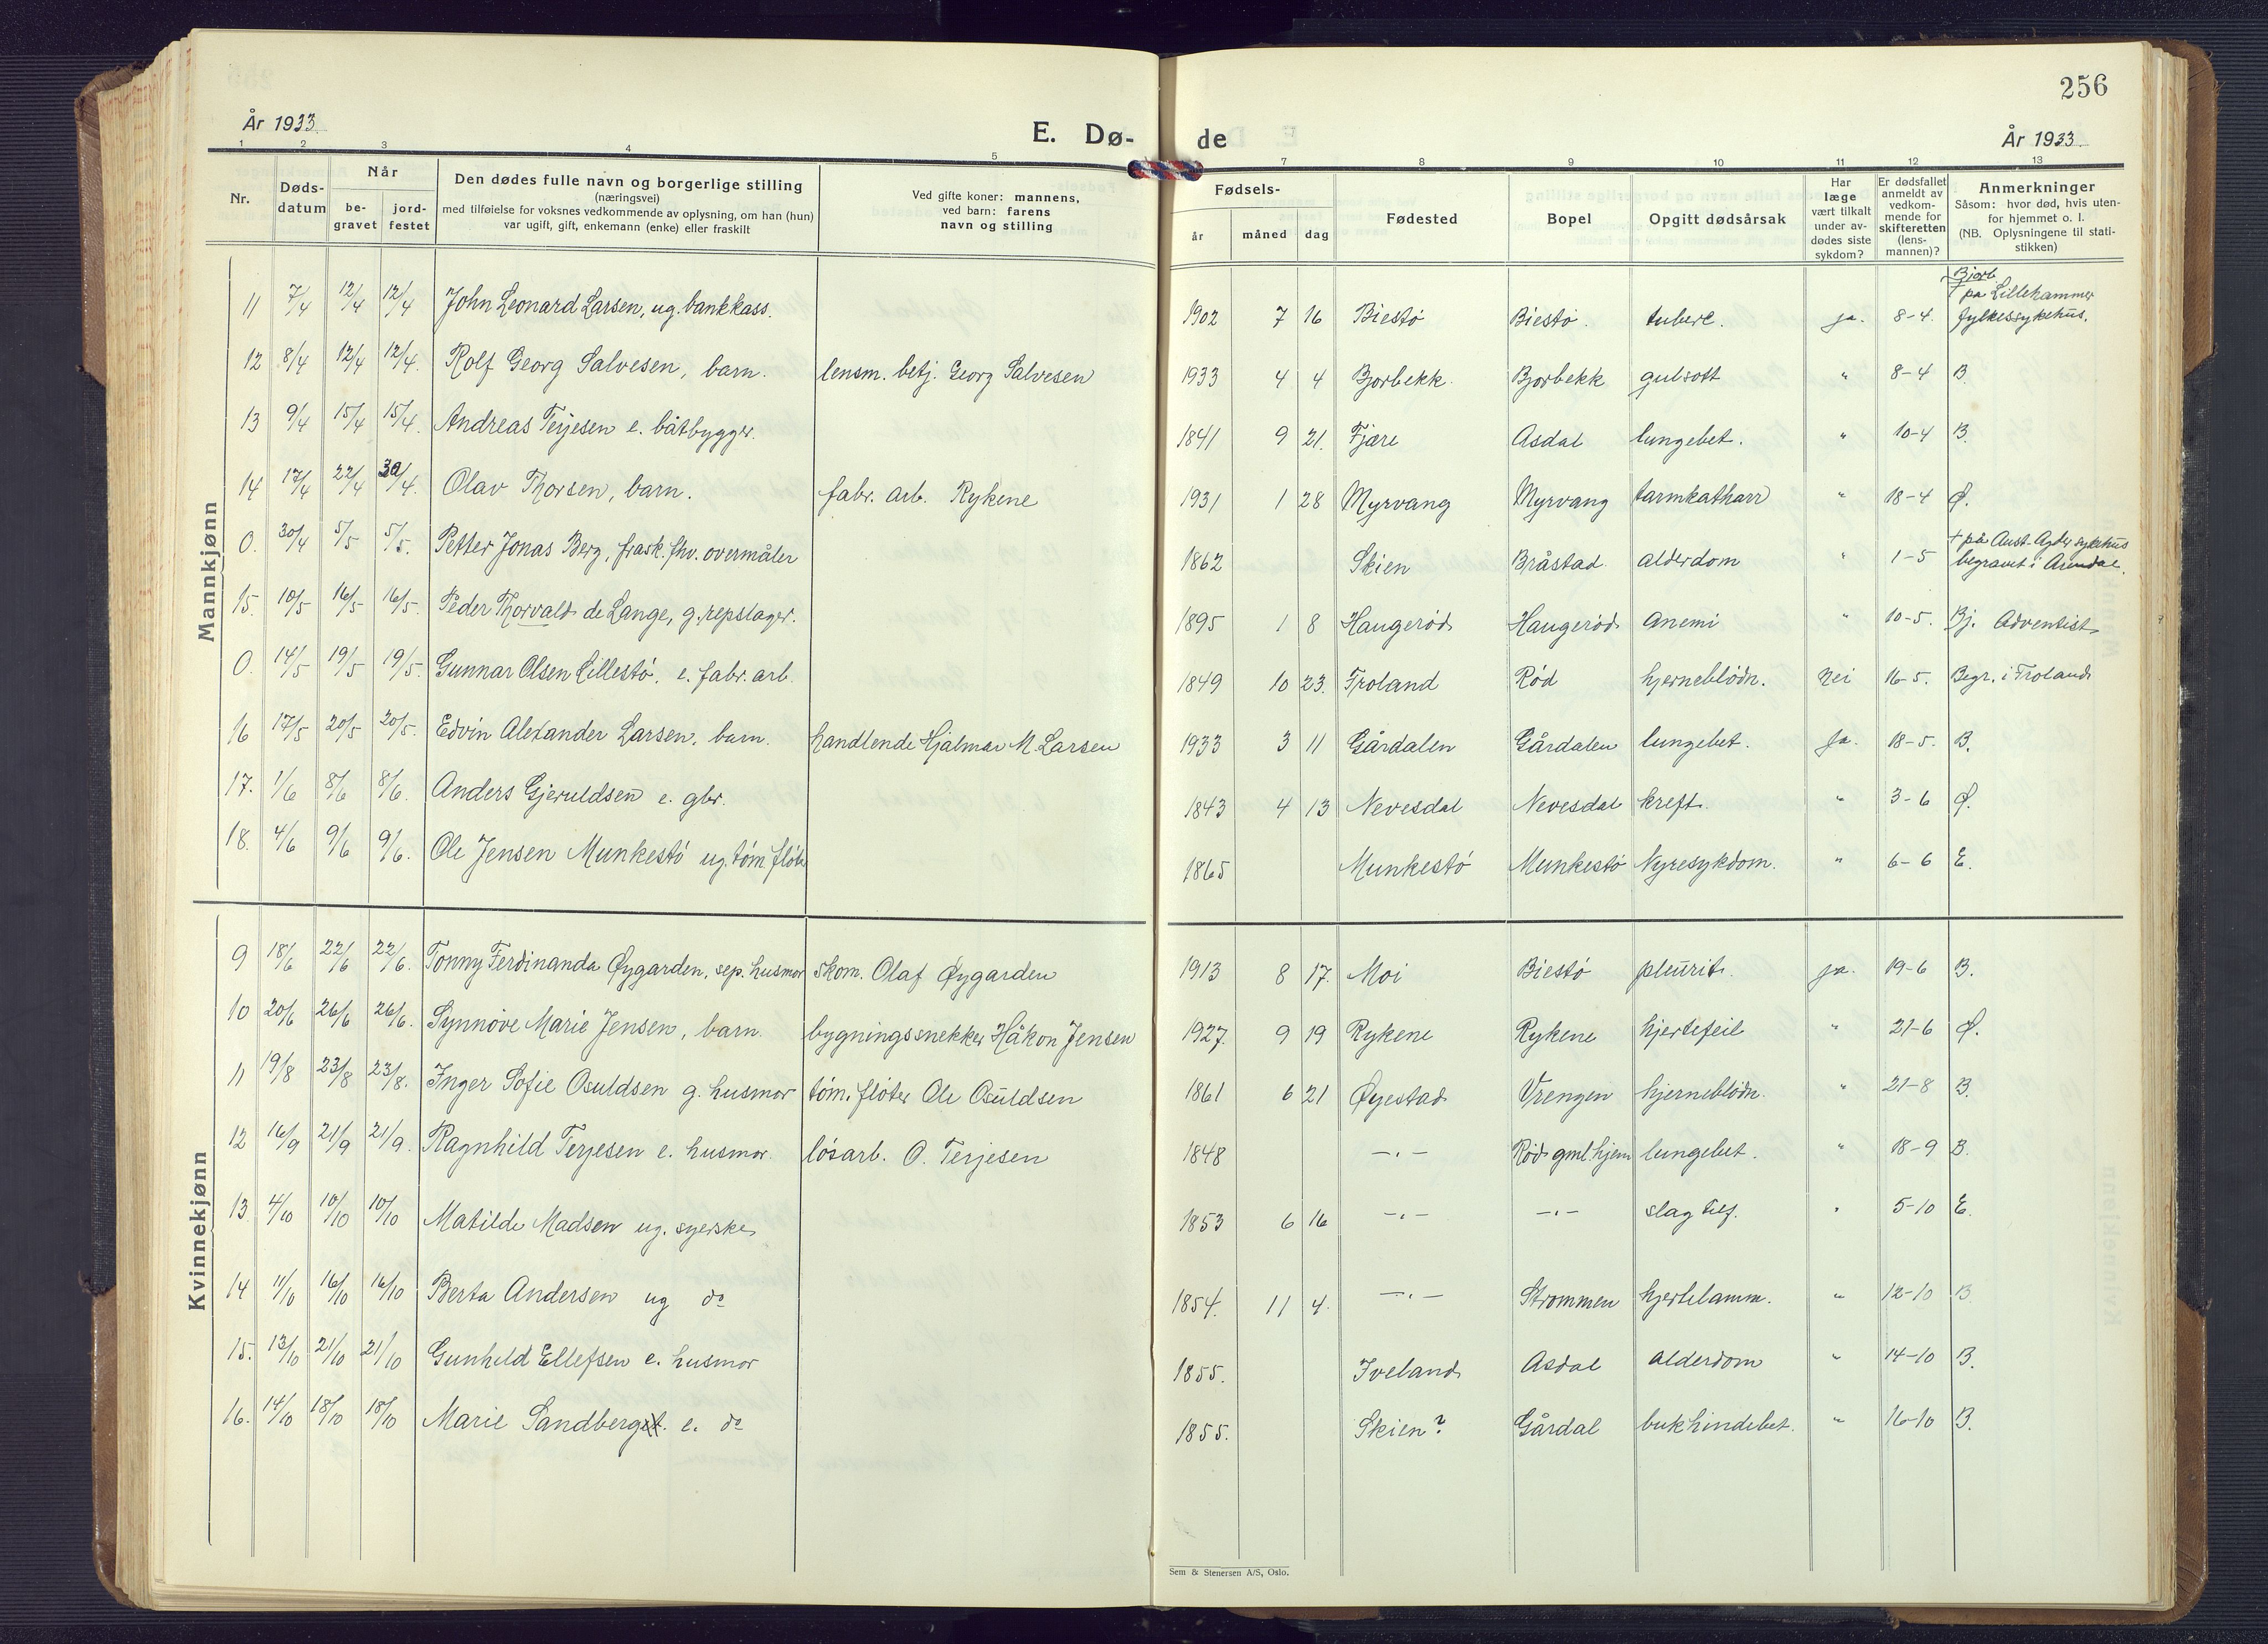 256
År 1933.
E. Dø-
de
År 1933.
1 2 3 4 5 7 8 9 10 11 12 13
Nr.
Døds-
datum
Når
be-
gravet
jord-
festet
Den dødes fulle navn og borgerlige stilling
(næringsvei)
med tilføielse for voksnes vedkommende av oplysning, om han (hun)
var ugift, gift, enkemann (enke) eller fraskilt
Ved gifte koner: mannens,
ved barn: farens
navn og stilling
Fødsels-
år
måned
dag
Fødested
Bopel
Opgitt dødsårsak
Har
læge
vært tilkalt
under av-
dødes siste
sykdom?
Er dødsfallet
anmeldt av
vedkom-
mende for
skifteretten
(lens-
mannen)?
Anmerkninger
Såsom: hvor død, hvis uten-
for hjemmet o. l.
(NB. Oplysningene til stati-
stikken)
Mannkjønn
11 7/4 12/4 12/4 John Leonard Larsen, ug. bankkass. 1902 7 16 Biestø Biestø. tuberc. ja. 8-4. Bjorb. † på Lillehammer fylkessykehus.
12 8/4 12/4 12/4. Rolf Georg Salvesen, barn. lensm. betj. Georg Salvesen 1933 4 4 Bjorbekk. Bjorbekk gulsott " 8-4 B.
13 9/4 15/4 15/4. Andreas Terjesen e. båtbygger. 1841 9 21. Fjære Asdal lungebet. " 10-4 B.
14 17/4 22/4 30/4. Olav Thorsen, barn. fabr. arb. Rykene 1931 1 28 Myrvang Myrvang tarmkatharr " 18-4 Ø.
0. 30/4 5/5 5/5. Petter Jonas Berg, frask. fhv. overmåler 1862 Skien Bråstad alderdom " 1-5 † på Aust-Agder sykehus begravet i Arendal.
15. 10/5 16/5 16/5. Peder Thorvald de Lange, g. repslager. 1895 1 8 Haugerød Haugerød anemi " 10-5. Bj. Adventist
0. 14/5 19/5 19/5. Gunnar Olsen Lillestø, e. fabr. arb. 1849 10 23. Froland Rød hjerneblødn. nei 16-5. Begr. i Froland
16 17/5 20/5 20/5. Edvin Alexander Larsen, barn. handlende Hjalmar M. Larsen 1933 3 11 Gårdalen Gårdalen lungebet. Ja. 18-5. B.
17. 1/6 8/6 8/6. Anders Gjeruldsen e. gbr. 1843 4 13 Nevesdal Nevesdal kreft. " 3-6 Ø.
18. 4/6 9/6 9/6. Ole Jensen Munkestø ug. tøm. fløter 1865 Munkestø Munkestø Nyresykdom. " 6-6 E.
Kvinnekjønn
9 18/6 22/6 22/6. Tonny Ferdinanda Øygarden, sep. husmor skom. Olaf Øygarden 1913 8 17. Moi Biestø pleurit. ja. 19-6 B.
10 20/6 26/6 26/6. Synnøve Marie Jensen, barn. bygningssnekker Håkon Jensen 1927. 9 19 Rykene Rykene hjertefeil " 21-6 Ø.
11 19/8 23/8 23/8. Inger Sofie Osuldsen g. husmor tøm. fløter Ole Osuldsen 1861 6 21 Øyestad Vrengen hjerneblødn. " 21-8 B.
12 16/9 21/9 21/9. Ragnhild Terjesen e. husmor. løsarb. O. Terjesen 1848 -"- Rød gml. hjem lungebet. " 18-9 B.
13 4/10 10/10 10/10 Matilde Madsen ug. syerske 1853 6 16 -"- -"- slagtilf. " 5-10 E.
14 11/10 16/10 16/10 Berta Andersen ug do 1854. 11 4. -"- Strømmen hjertelamm. " 12-10 B
15. 13/10 21/10 21/10 Gunhild Ellefsen e. husmor 1855. Iveland Asdal alderdom " 14-10 B.
16. 14/10 18/10 18/10 Marie Sandberg. e. do 1855. Skien? Gårdal bukhindebet. " 16-10 B.
Sem & Stenersen A/S, Oslo.